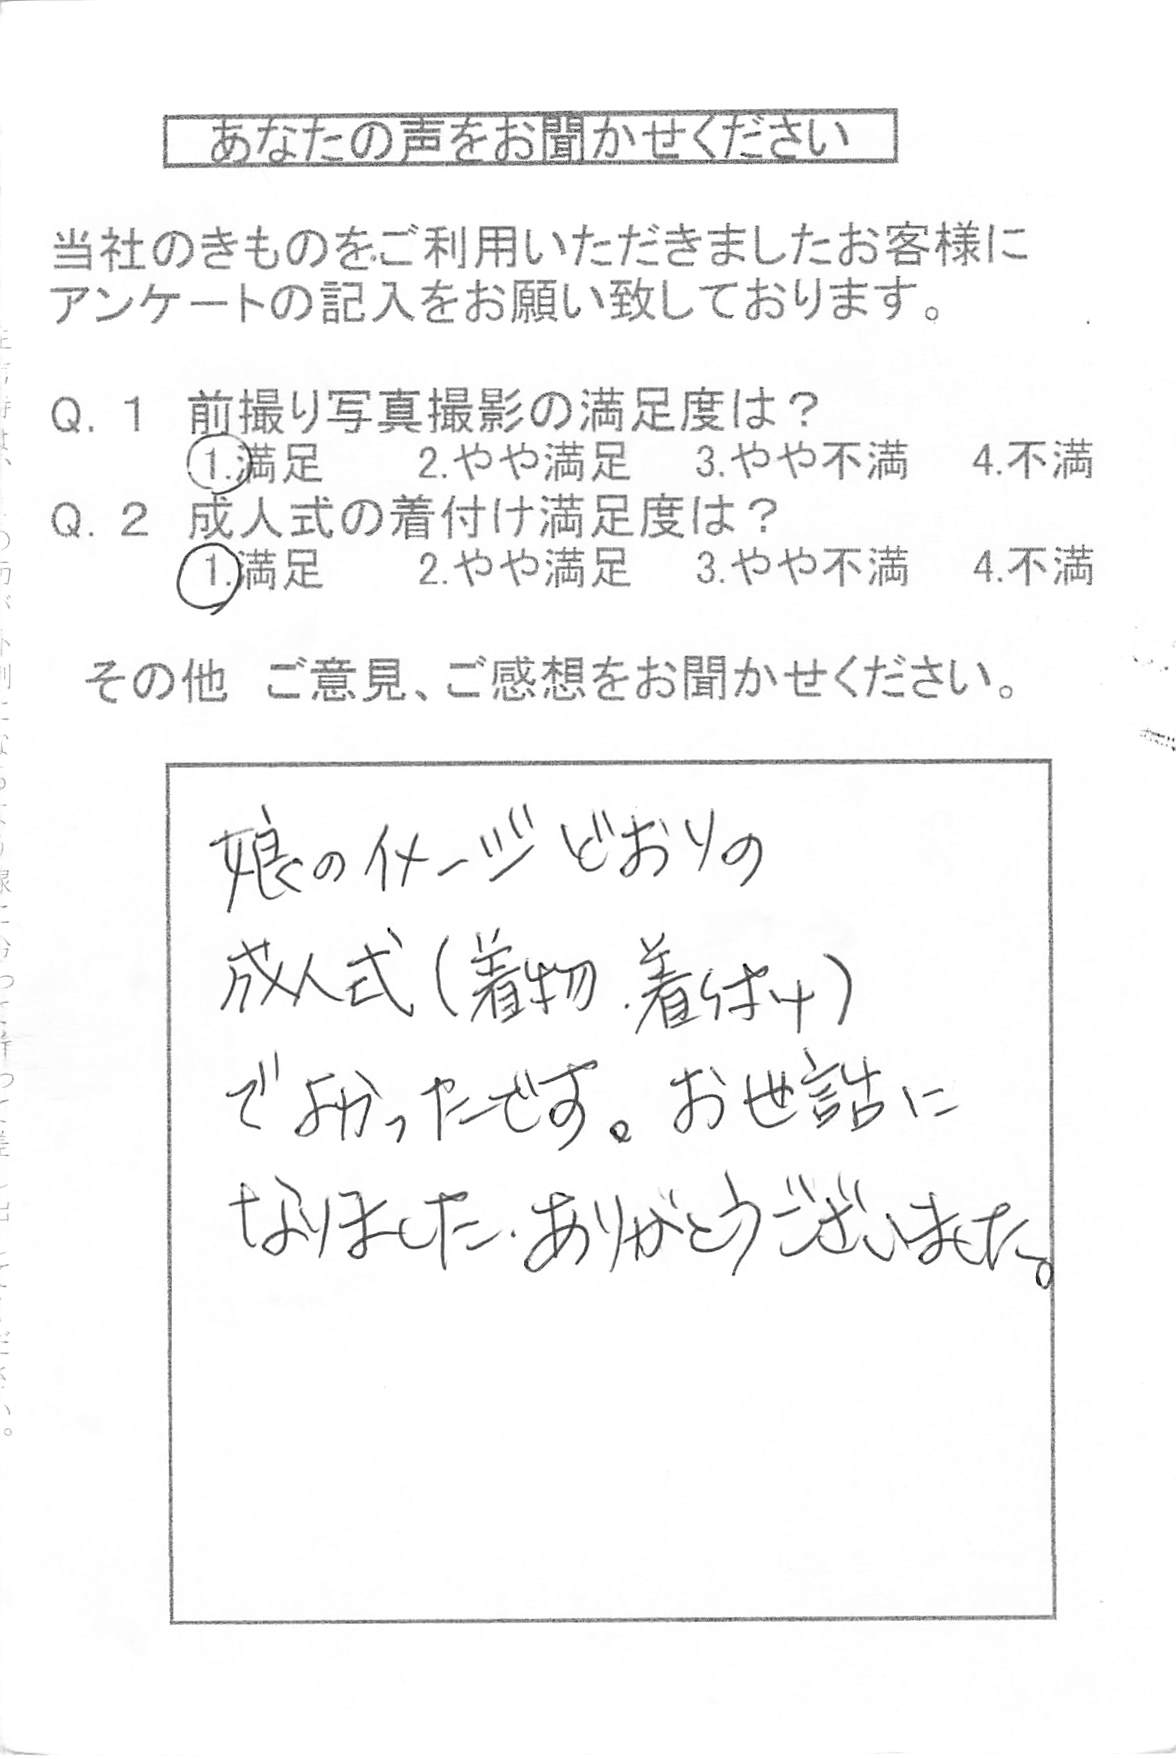 あなたの声をお聞かせください
当社のきものをご利用いただきましたお客様に
アンケートの記入をお願い致しております。
Q. 1 前撮り写真撮影の満足度は？
1.満足 2.やや満足 3.やや不満 4.不満
Q. 2 成人式の着付け満足度は？
1.満足 2.やや満足 3.やや不満 4.不満
その他 ご意見、ご感想をお聞かせください。
娘のイメージどおりの
成人式(着物.着付け)
でよかったです。お世話に
なりました.ありがとうございました。